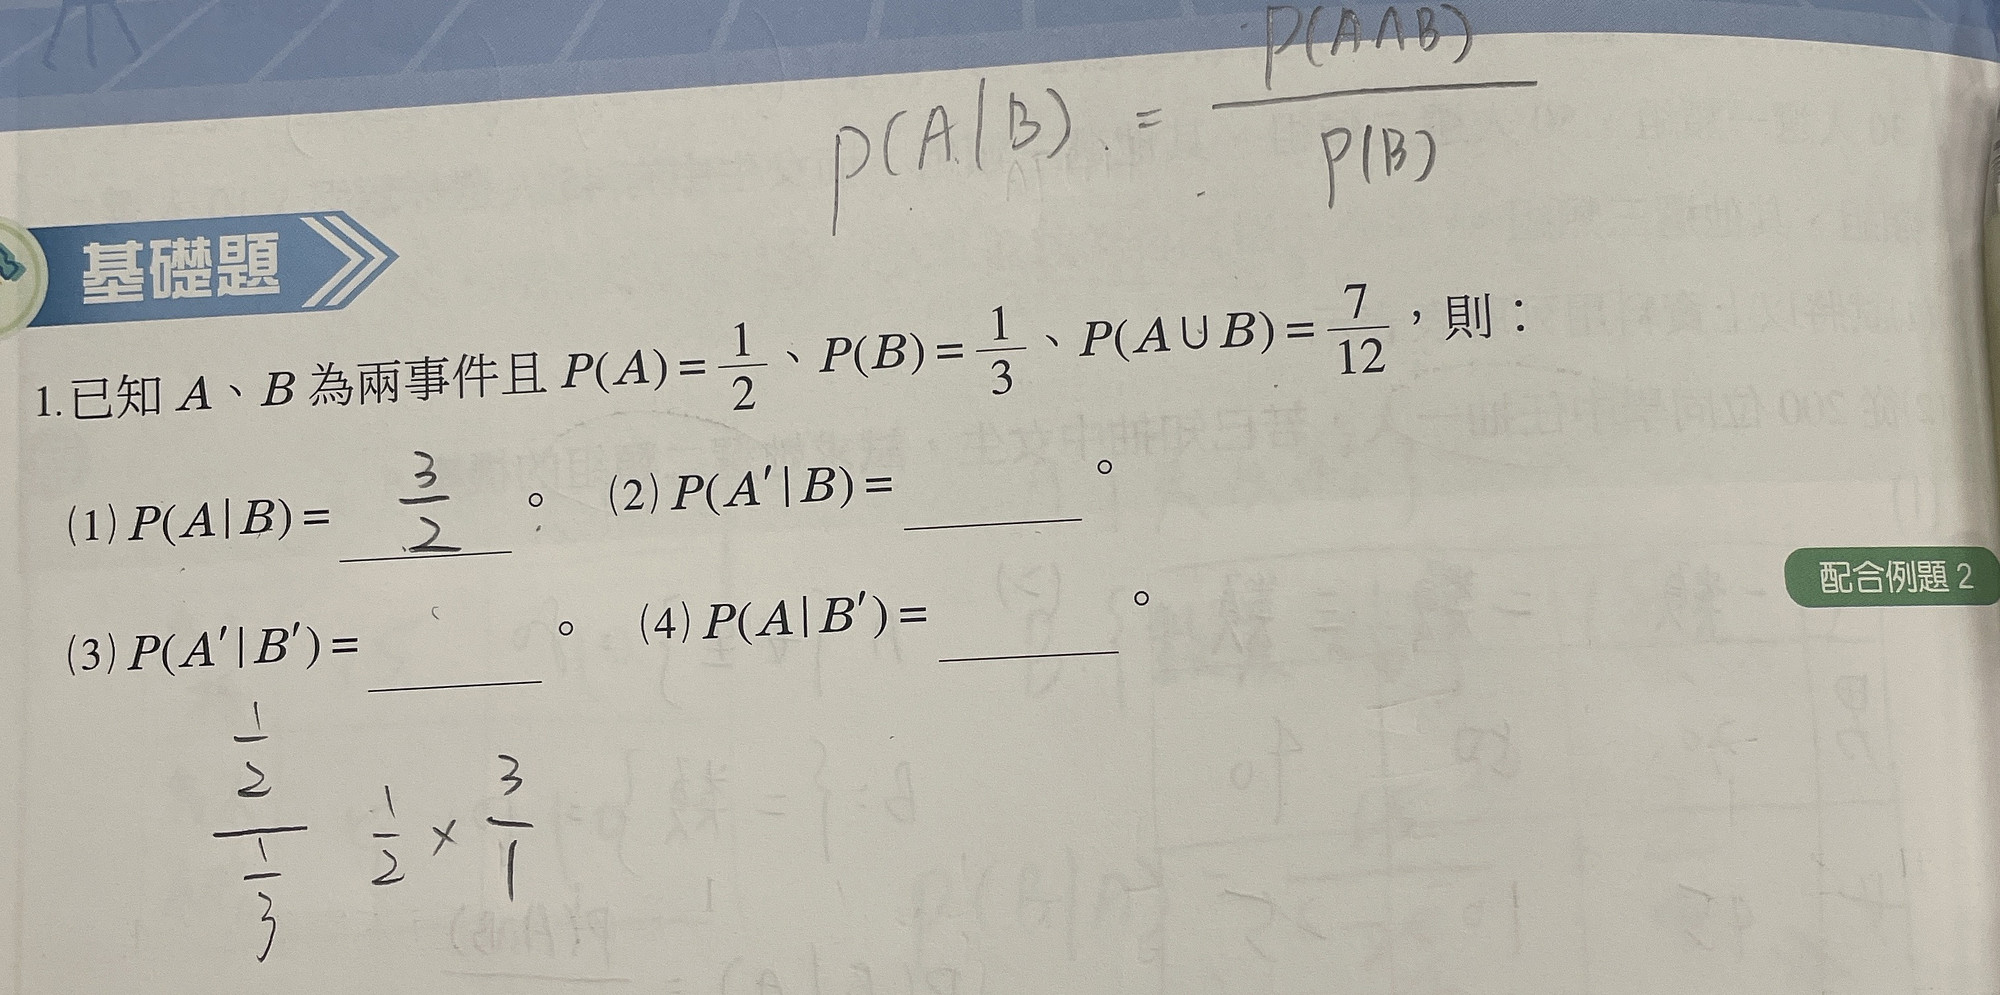 P(A|B) = P(A∩B) / P(B)
基礎題
1.已知 A、B 為兩事件且 P(A)=1/2、P(B)=1/3、P(A∪B)=7/12,則:
(1)P(A|B)= 3/2 。 (2)P(A′|B)=______。
配合例題 2
(3)P(A′|B′)=______。 (4)P(A|B′)=______。
1/2 / 1/3 1/2 × 3/1